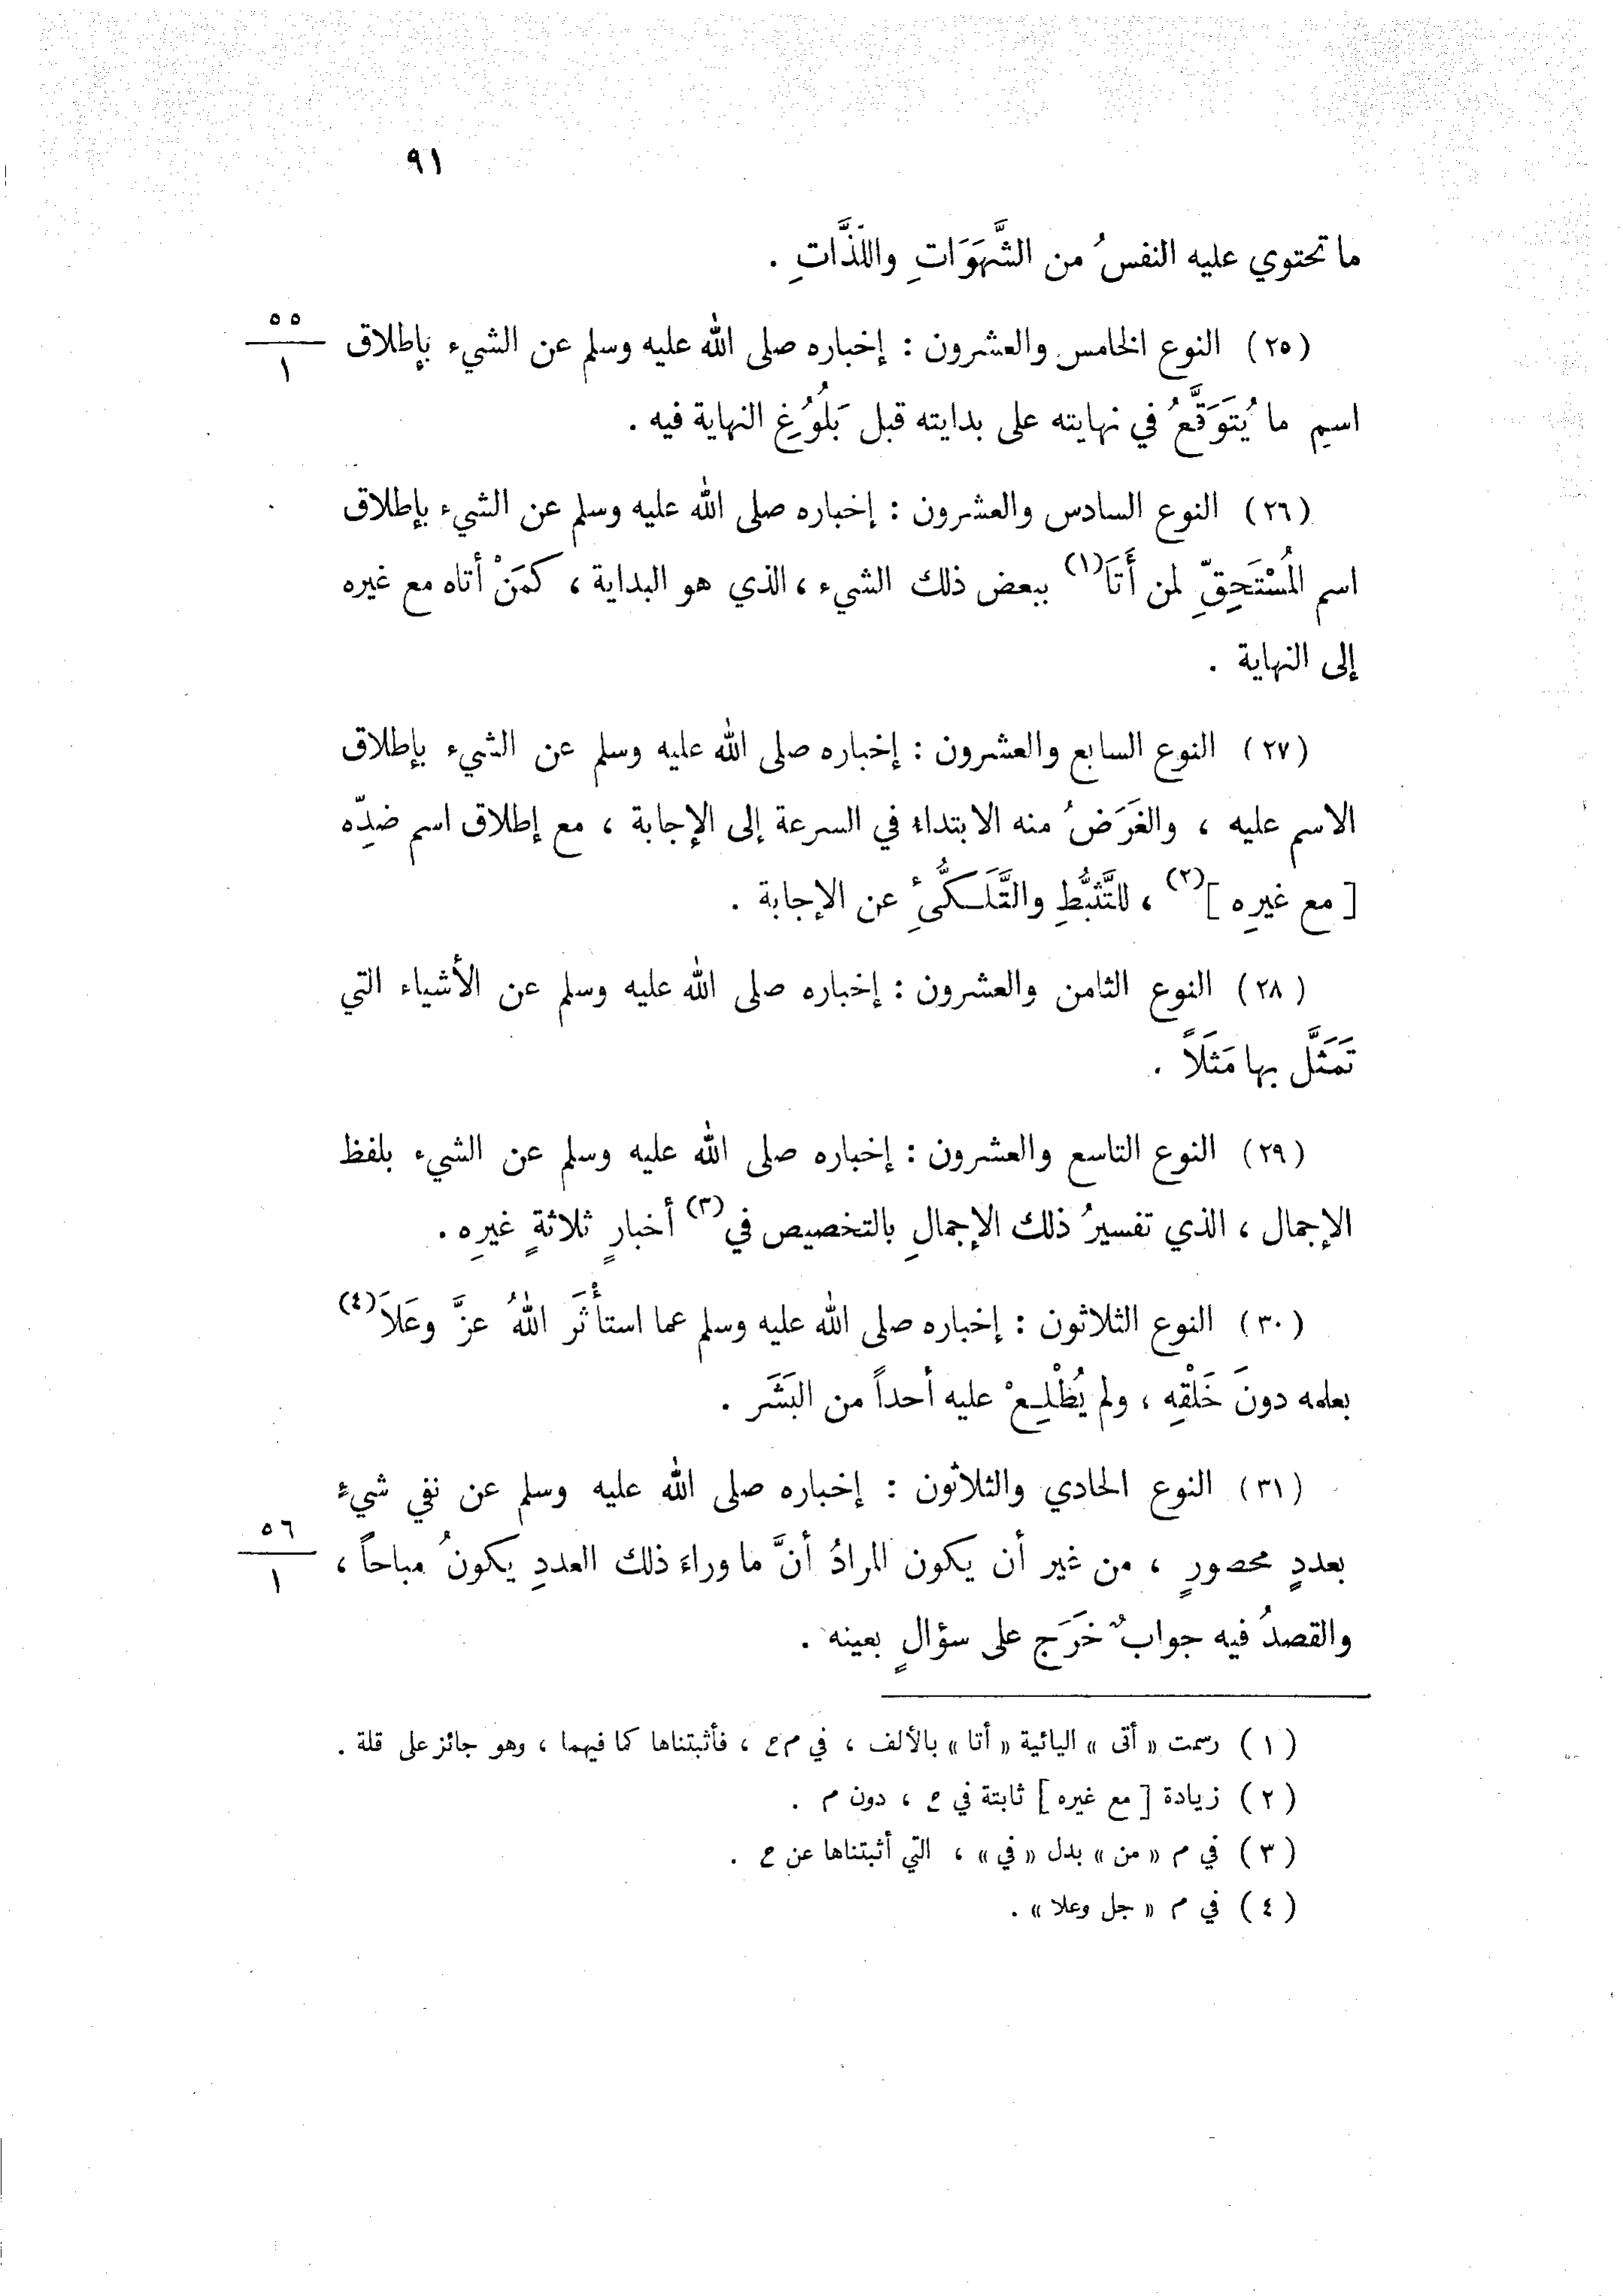 ٩١
ما تحتوي عليه النفسُ من الشَّهَوَاتِ واللَذَّاتِ .
(٢٥) النوع الخامس والعشرون : إخباره صلى الله عليه وسلم عن الشيء بإطلاق
٥٥
١
اسمِ ما يُتَوَقَّعُ في نهايته على بدايته قبل بَلُوُغِ النهاية فيه .
(٢٦) النوع السادس والعشرون : إخباره صلى الله عليه وسلم عن الشيء بإطلاق
اسم المُسْتَحِقِّ لمن أَتَا(١) ببعض ذلك الشيء ، الذي هو البداية ، كمَنْ أتاه مع غيره
إلى النهاية .
(٢٧) النوع السابع والعشرون : إخباره صلى الله عليه وسلم عن الشيء بإطلاق
الاسم عليه ، والغَرَضُ منه الابتداء في السرعة إلى الإجابة ، مع إطلاق اسم ضدِّه
[ مع غيرِه ](٢) ، للتَّثَبُّطِ والتَّلَكُّئِ عن الإجابة .
(٢٨) النوع الثامن والعشرون : إخباره صلى الله عليه وسلم عن الأشياء التي
تَمَثَّل بها مَثَلاً .
(٢٩) النوع التاسع والعشرون : إخباره صلى الله عليه وسلم عن الشيء بلفظ
الإجمال ، الذي تفسيرُ ذلك الإجمالِ بالتخصيص في(٣) أخبارٍ ثلاثةٍ غيرِه .
(٣٠) النوع الثلاثون : إخباره صلى الله عليه وسلم عما استأْثَر اللهُ عزَّ وعَلاَ(٤)
بعلمه دونَ خَلْقِه ، ولم يُطْلِعْ عليه أحداً من البَشَر .
(٣١) النوع الحادي والثلاثون : إخباره صلى الله عليه وسلم عن نفي شيءٍ
بعددٍ محصورٍ ، من غير أن يكون المرادُ أنَّ ما وراءَ ذلك العددِ يكونُ مباحاً ،
٥٦
١
والقصدُ فيه جوابٌ خَرَج على سؤالٍ بعينه .
(١) رسمت « أتى » اليائية « أتا » بالألف ، في م ع ، فأثبتناها كما فيهما ، وهو جائز على قلة .
(٢) زيادة [ مع غيره ] ثابتة في ع ، دون م .
(٣) في م « من » بدل « في » ، التي أثبتناها عن ع .
(٤) في م « جل وعلا » .